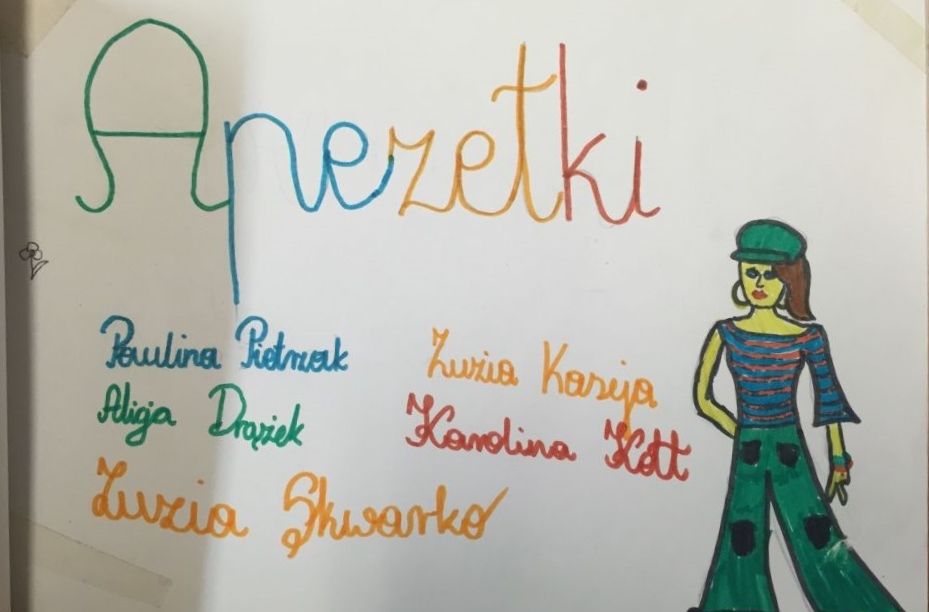 Apezetki
Paulina Pietrzak
Zuzia Kasija
Alicja Drążek
Karolina Kott
Zuzia Skwarko